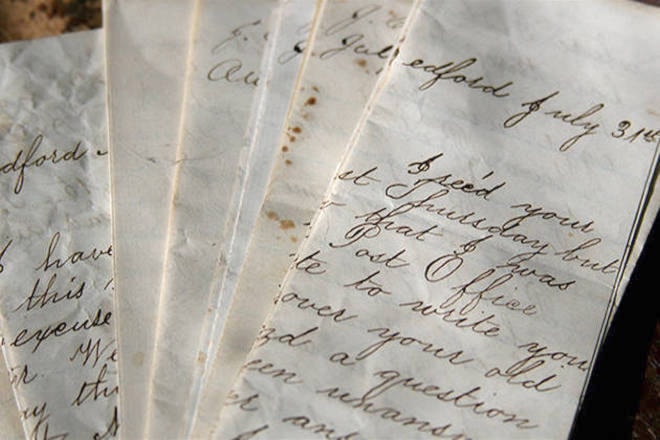 dford -
I have
this
excuse
r. We
Au
Jul
edford July 31st
I rec'd your
st Thursday but
that I was
Post Office
te to write you
over your old
d a question
een unansw